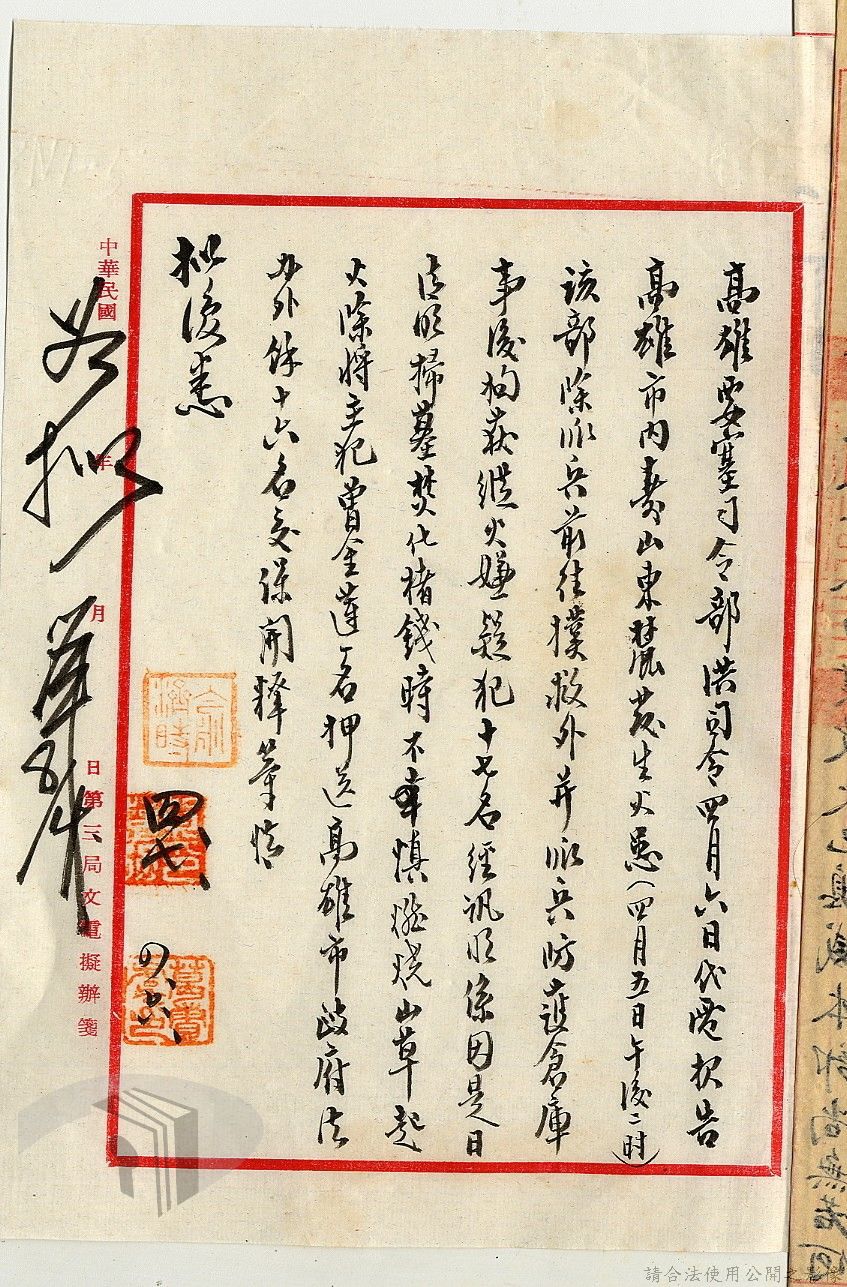 高雄要塞司令部洪司令四月六日代電报告
高雄市內壽山東麓發生火患(四月五日午後二时)
該部除派兵前往撲救外并派兵防護倉庫
事後拘获縱火嫌疑犯十七名經讯明係因是日
清明掃墓焚化楮錢時不慎燃燒山草起
火除將主犯曾金蓮一名押送高雄市政府法
办外餘十六名交保開釋等情
拟復悉
如拟
中華民國 年 月 日第三局文電擬辦箋
四、七、
四、六、
請合法使用公開之影像